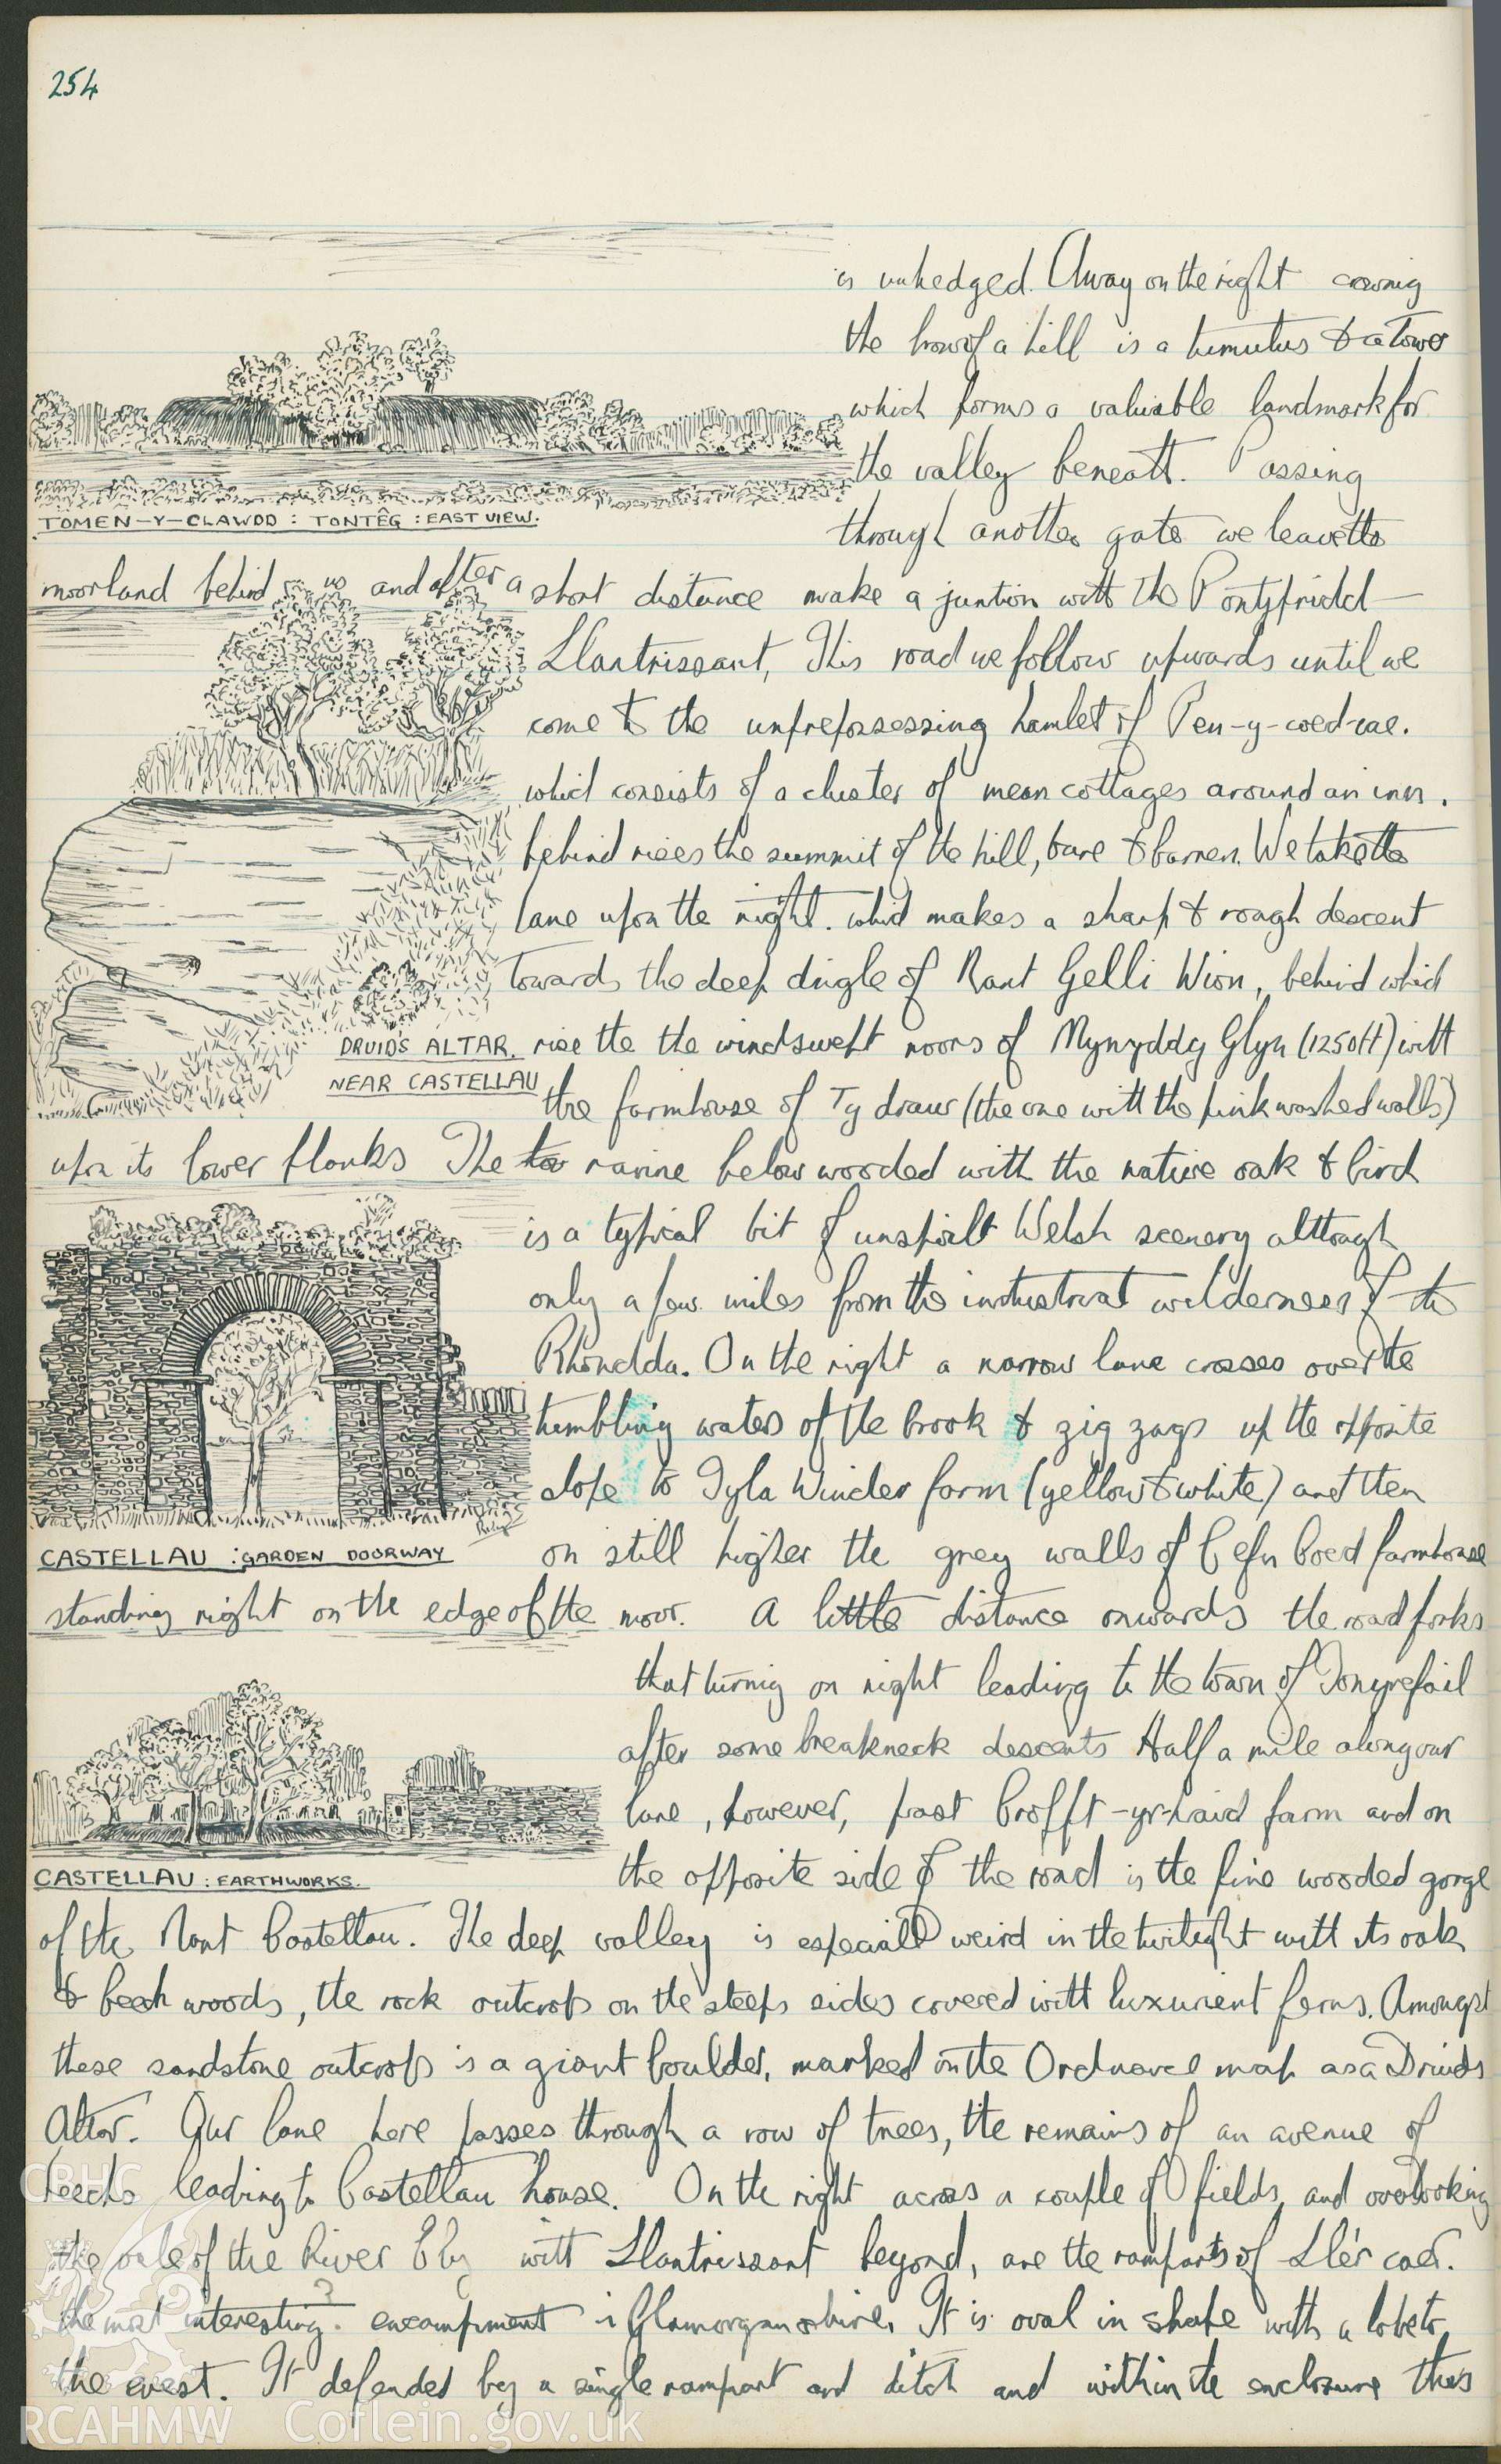 254
is unhedged. Away on the right crowning
the brow of a hill is a tumulus & a tower
which forms a valuable landmark for
the valley beneath. Passing
through another gate we leave the
TOMEN-Y-CLAWDD : TONTÊG : EAST VIEW.
moorland behind us and after a short distance make a juntion with the Pontypridd
Llantrissant, This road we follow upwards until we
come to the unprepossessing hamlet of Pen-y-coed-cae.
which consists of a cluster of mean cottages around an inn.
behind rises the summit of the hill, bare & barren. We take the
lane upon the right. which makes a sharp & rough descent
towards the deep dingle of Nant Gelli Wion, behind which
DRUID'S ALTAR.
NEAR CASTELLAU
rise the the windswept moors of Mynyddy Glyn (1250ft) with
the farmhouse of Ty draw (the one with the pink washed walls)
upon its lower flanks The ravine below wooded with the native oak & birch
is a typical bit of unspoilt Welsh scenery although
only a few miles from the industrial wilderness of the
Rhondda. On the right a narrow lane crosses over the
tumbling waters of the brook & zig zags up the opposite
slope to Tyla Winder farm (yellow & white) and then
CASTELLAU : GARDEN DOORWAY
on still higher the grey walls of Cefn Coed farmhouse
standing right on the edge of the moor. A little distance onwards the road forks
that turning on right leading to the town of Tonyrefail
after some breakneck descents Half a mile along our
lane, however, past Crofft-yr-haidd farm and on
CASTELLAU : EARTHWORKS.
the opposite side of the road is the fine wooded gorge
of the Nant Castellau. The deep valley is especiall weird in the twilight with its oak
& beech woods, the rock outcrops on the steep sides covered with luxurient ferns. Amongst
these sandstone outcrops is a giant boulder, marked on the Ordnance map as a Druids
Altar. Our lane here passes through a row of trees, the remains of an avenue of
beechs leading to Castellau house. On the right across a couple of fields, and overlooking
the vale of the River Ely with Llantrissant beyond, are the ramparts of Lle'r caer.
the most interesting ? encampment in Glamorganshire. It is oval in shape with a lobe to
the west. It defended by a single rampart and ditch and within the enclosure thers
CBHC
RCAHMW Coflein.gov.uk